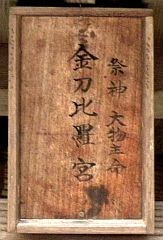 祭神 大物主命
金刀比羅宮